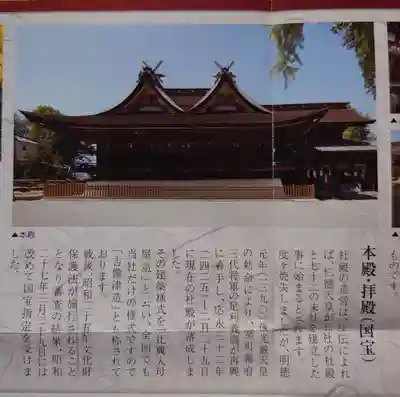 ▲本殿
本殿・拝殿(国宝)
社殿の造営は、社伝によれ
ば、仁徳天皇が五社の社殿
と七十二の末社を建立した
事に始まるとされます。
度を焼失しましたが、明徳
元年(一三九〇)後光厳天皇
の勅命により、室町幕府
三代将軍の足利義満が再興
に着手し、応永三十二年
(一四二五)十二月二十九日
に現在の社殿が落成しま
した。
その建築様式を「比翼入母
屋造」といい、全国でも
当社だけの様式ですので
「吉備津造」とも称されて
おります。
戦後、昭和二十五年文化財
保護法が施行されること
となり、審査の結果、昭和
二十七年二月二十九日には
改めて国宝指定を受けま
した。
ものです。